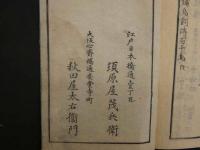 江戸日本橋通壹丁目
須原屋茂兵衛
大坂心斎橋通安堂寺町
秋田屋太右衛門